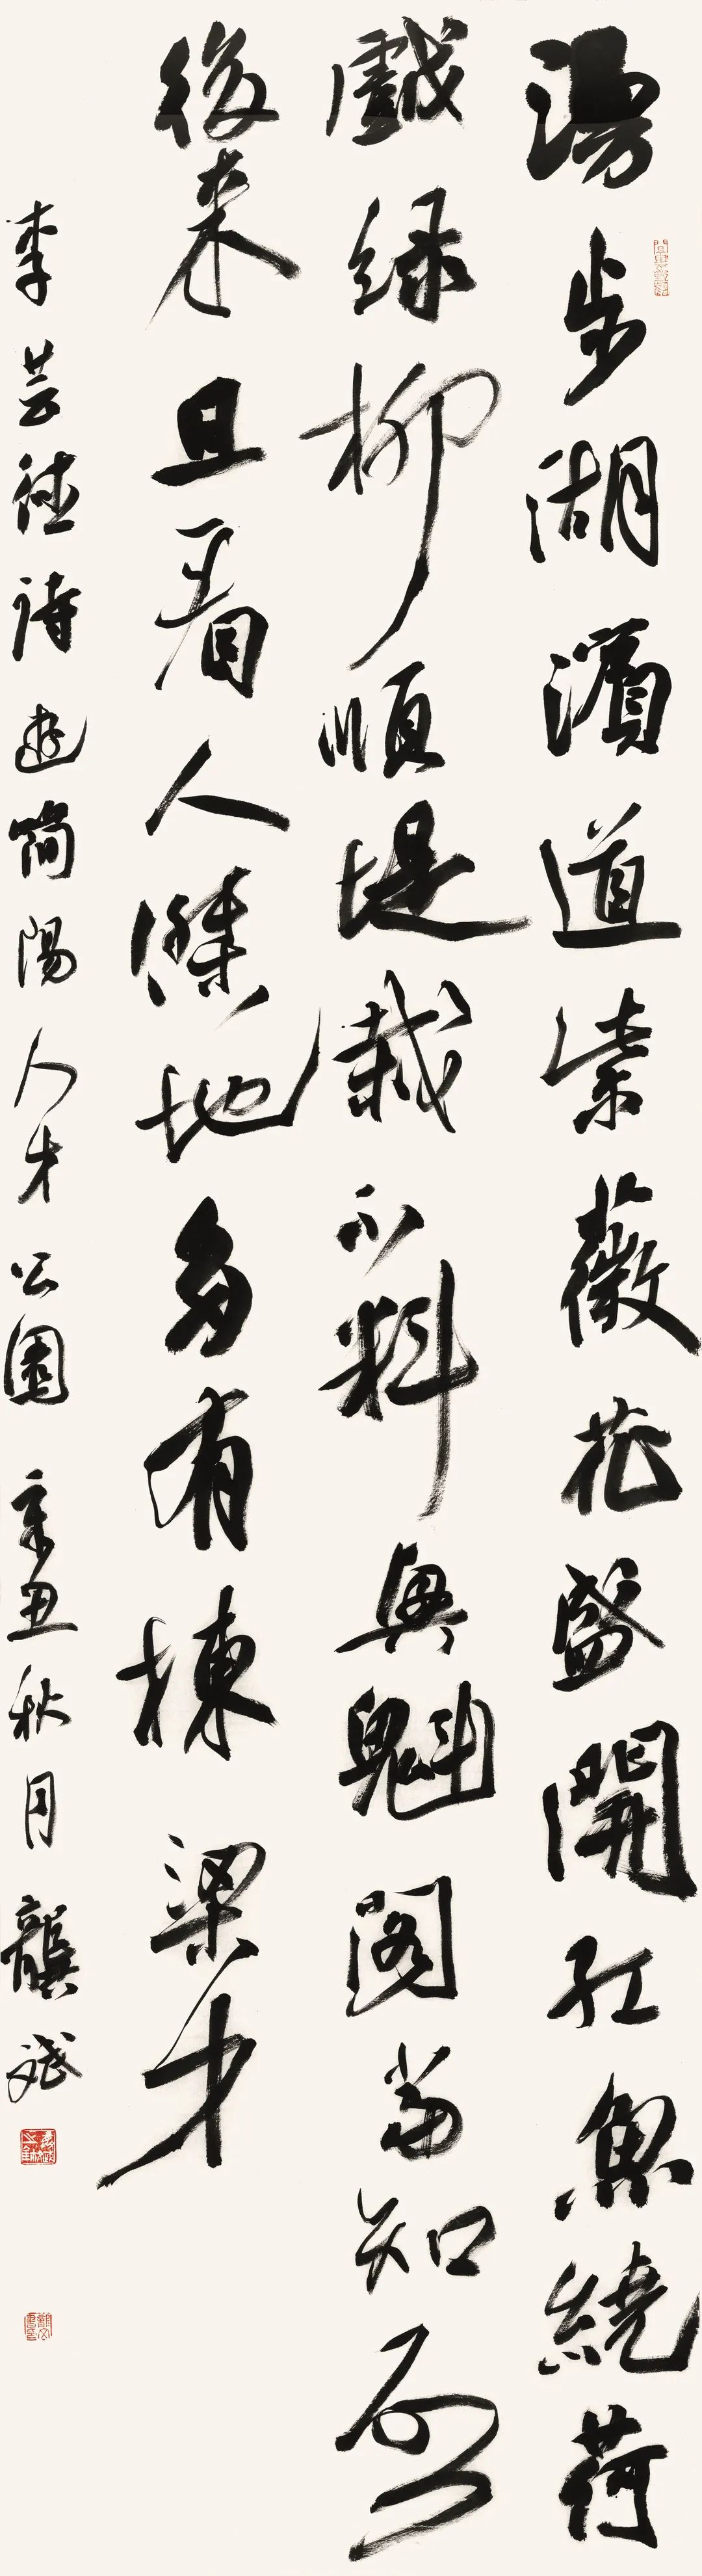 漫步湖濱道紫薇花盛開紅魚繞荷
戲綠柳順堤栽不料與魁閣當知
後來且看人傑地多有棟梁才
李芸德詩遊簡陽人才公園 辛丑秋月龔斌